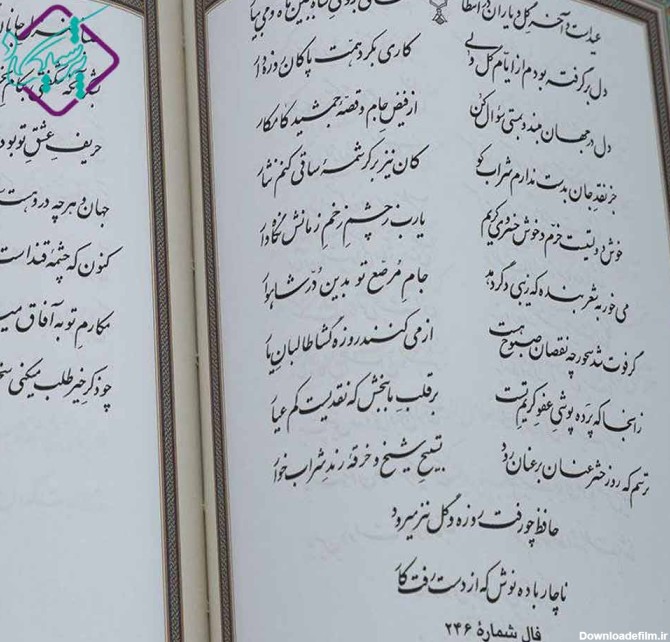 عیدست و آخر گل و یاران در انتظار ساقی بروی شاه ببین ماه و می بیار
دل برگرفته بودم از ایّام گل ولی کاری بکرد همّت پاکان روزه دار
دل در جهان مبند و بمستی سؤال کن از فیض جام و قصّهٔ جمشید کامکار
جز نقد جان بدست ندارم شراب کو کان نیز بر کرشمهٔ ساقی کنم نثار
خوش دولتیست خرّم و خوش خسروی کریم یارب ز چشم زخم زمانش نگاه دار
می خور به شعر بنده که زیبی دگر دهد جام مرصّع تو بدین درّ شاهوار
گر فوت شد سحور چه نقصان صبوح هست از می کنند روزه گشا طالبان یار
زانجا که پرده پوشی عفو کریم تست بر قلب ما ببخش که نقدیست کم عیار
ترسم که روز حشر عنان بر عنان رود تسبیح شیخ و خرقهٔ رند شراب خوار
حافظ چو رفت روزه و گل نیز میرود
ناچار باده نوش که از دست رفت کار
فال شمارهٔ ۲۴۶
حریف عشق تو بود
جهان و هرچه در
کنون که چشمهٔ قند است
مکارم تو به آفاق
چو ذکر خیر طلب میکنی
Downloadefilm.ir